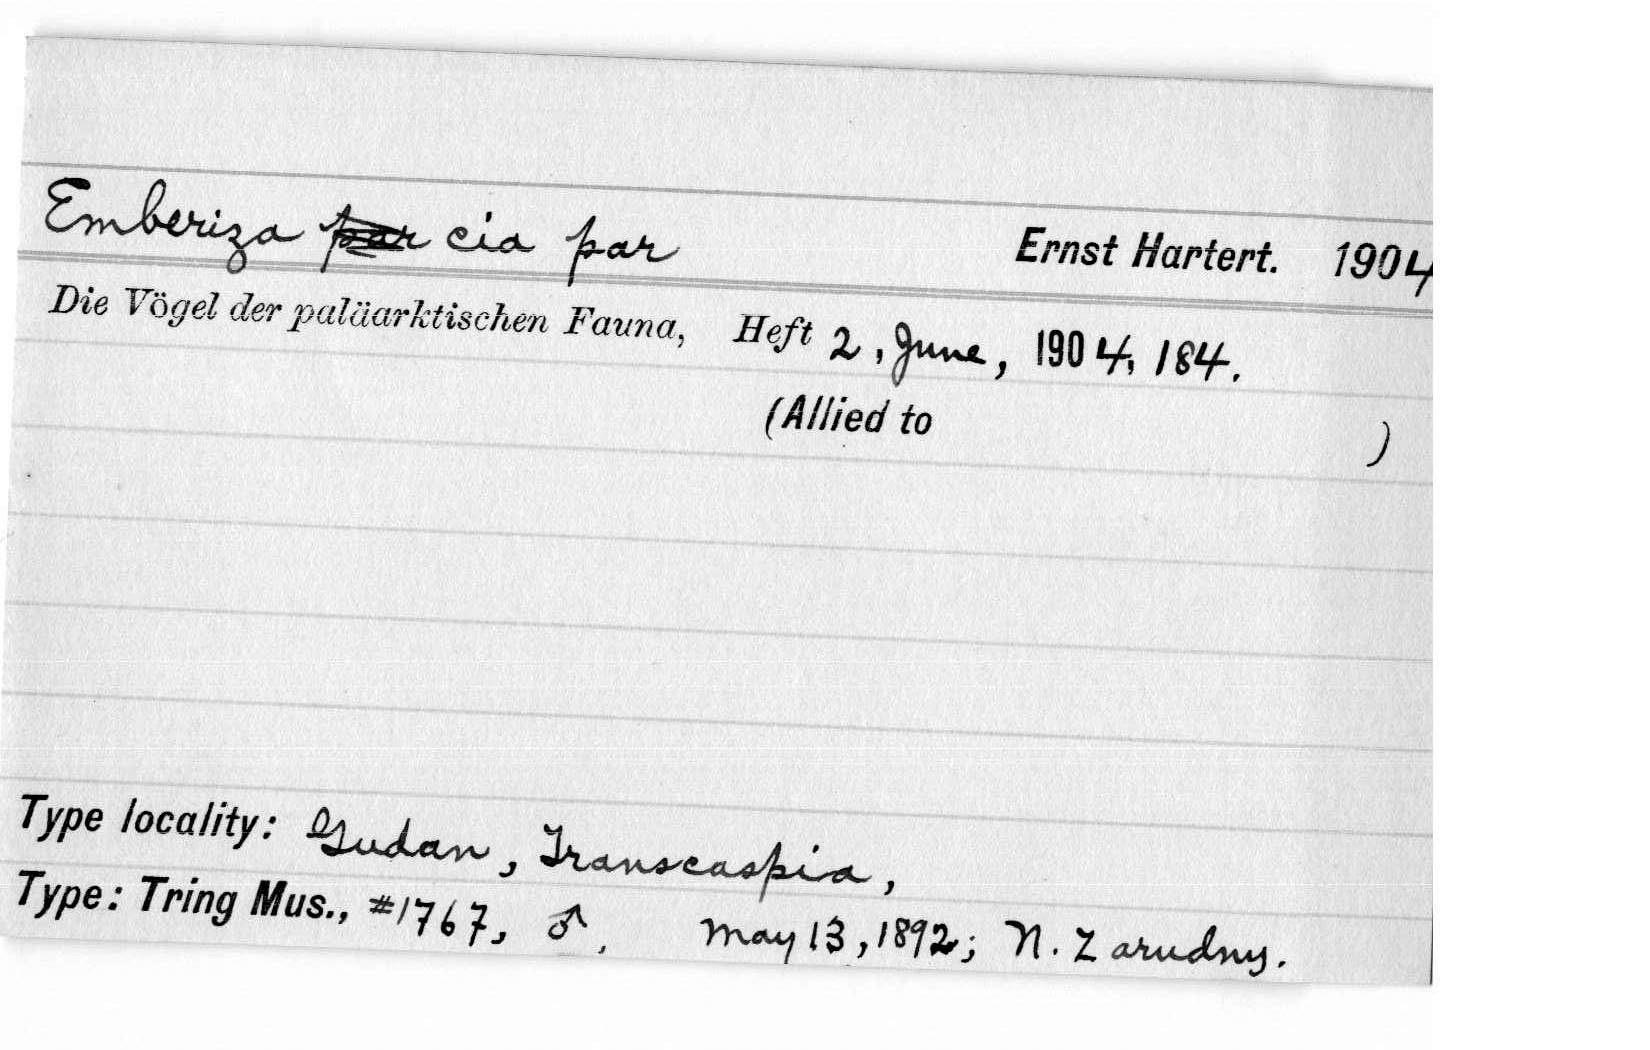 Emberiza par cia par Ernst Hartert. 1904
Die Vögel der paläarktischen Fauna, Heft 2, June, 1904, 184.
(Allied to )
Type locality: Gudan, Transcaspia,
Type: Tring Mus., #1767, ♂, May 13, 1892; N. Zarudny.